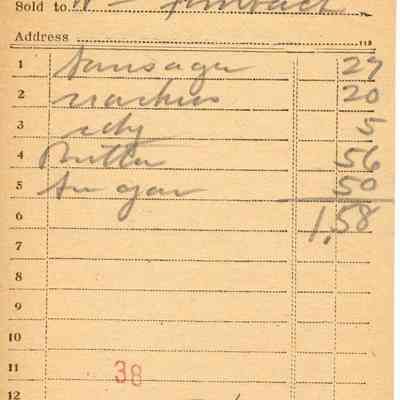 Sold to
Address
1 Sausage 27
2 crackers 20
3 5
4 Butter 56
5 Sugar 50
6 1,58
7
8
9
10
11 38
12